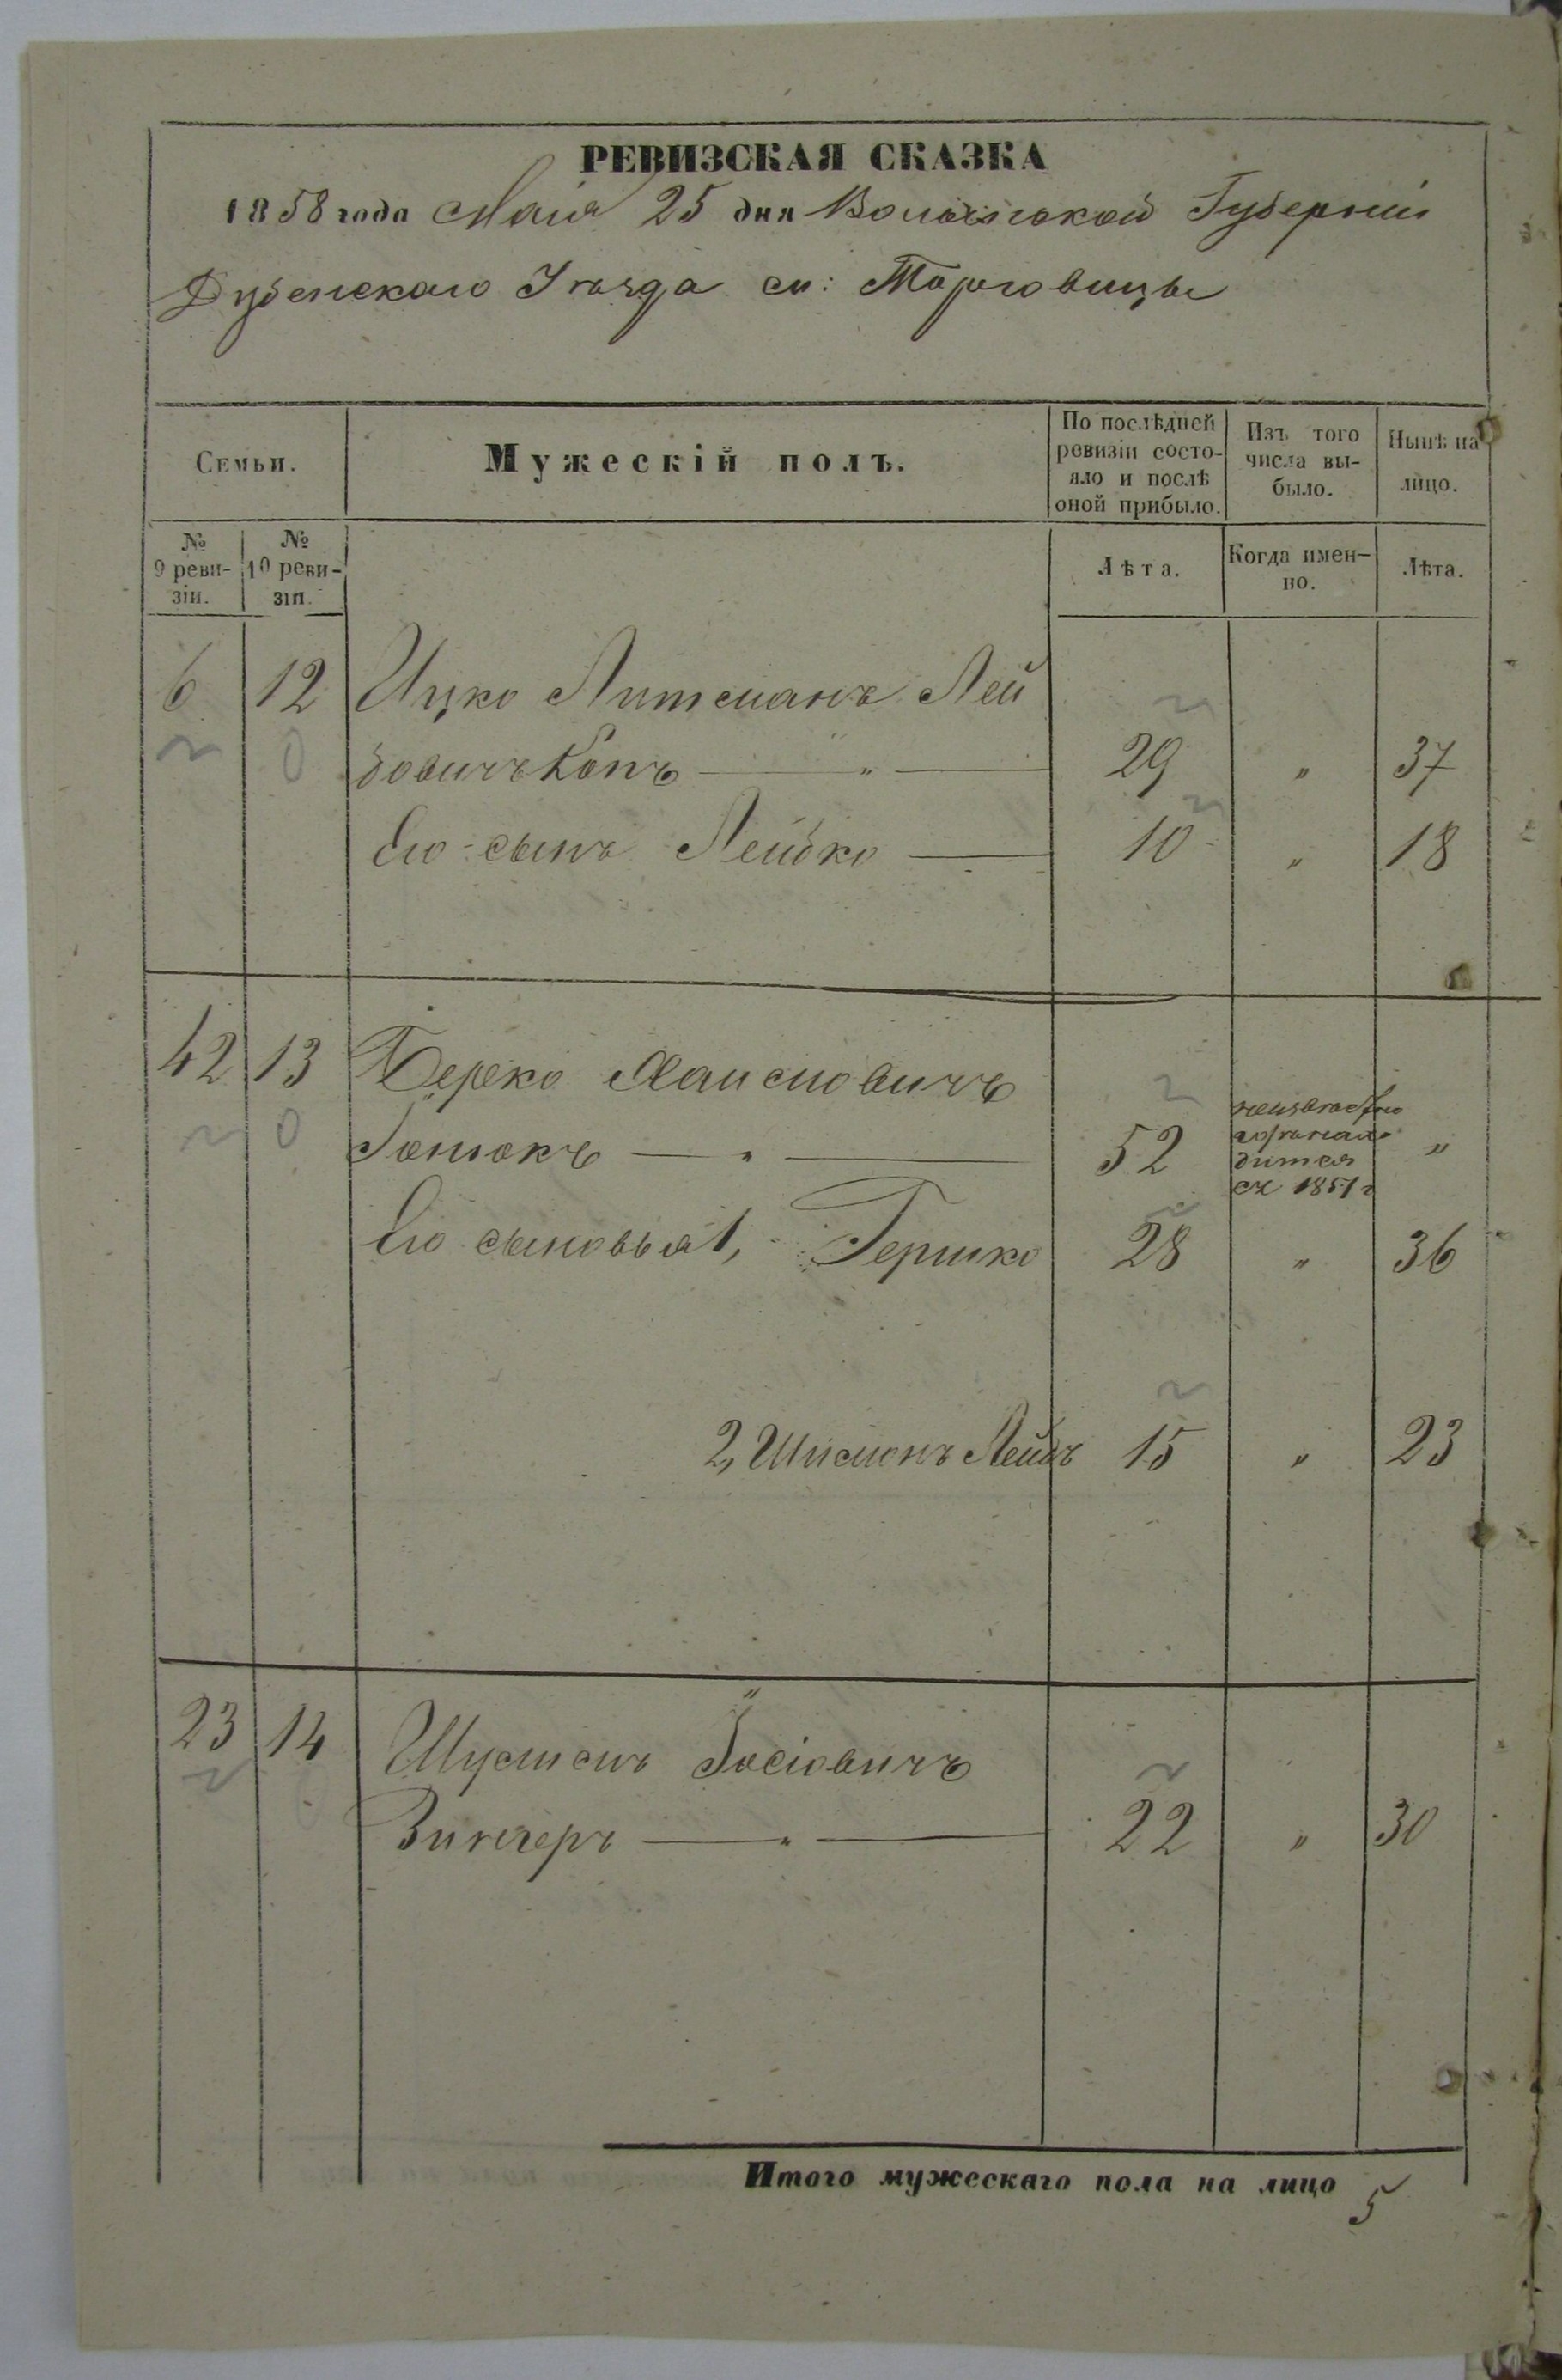 РЕВИЗСКАЯ СКАЗКА
1858 года Маія 25 дня Волынской Губерніи
Дубенскаго Уѣзда м: Торговицы
Семьи.
Мужескій полъ.
По послѣдней ревизіи состояло и послѣ оной прибыло.
Изъ того числа выбыло.
Нынѣ на лицо.
№ 9 ревизіи.
№ 10 ревизіи.
Лѣта.
Когда именно.
Лѣта.
6 12 Ицко Литманъ Лей
бовичъ Копъ — „ — 29 „ 37
Его сынъ Лейбко — 10 „ 18
42 13 Берко Хаимовичъ
— „ — 52 „
съ 1851 г
Его сыновья 1, Гершко 28 „ 36
2, Шимонъ Лейбъ 15 „ 23
23 14 Шулимъ Іосіовичъ
Зингеръ — „ — 22 „ 30
Итого мужескаго пола на лицо 5